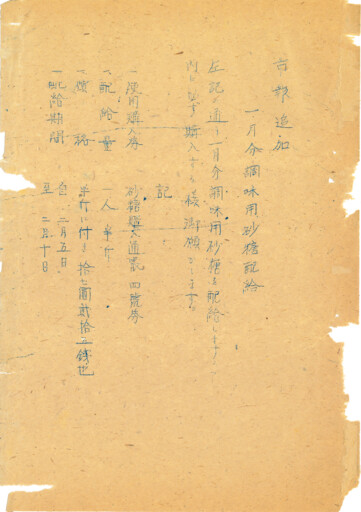 市報追加
一月分調味用砂糖配給
左記ノ通リ一月分調味用砂糖ヲ配給シマス
内ニ必ズ購入スル様御願ヒシマス
記
一使用購入券 砂糖購入通票四號券
一配給量 一人半斤
一價格 半斤ニ付キ拾 圓貳拾 錢也
一配給期間 自二月五日
至二月十日